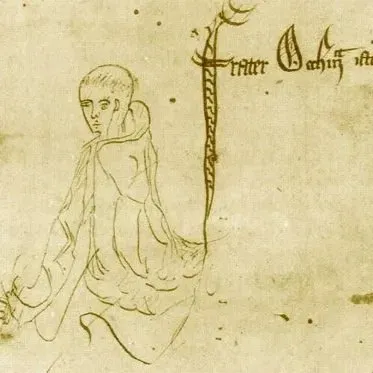 frater Occhā ist